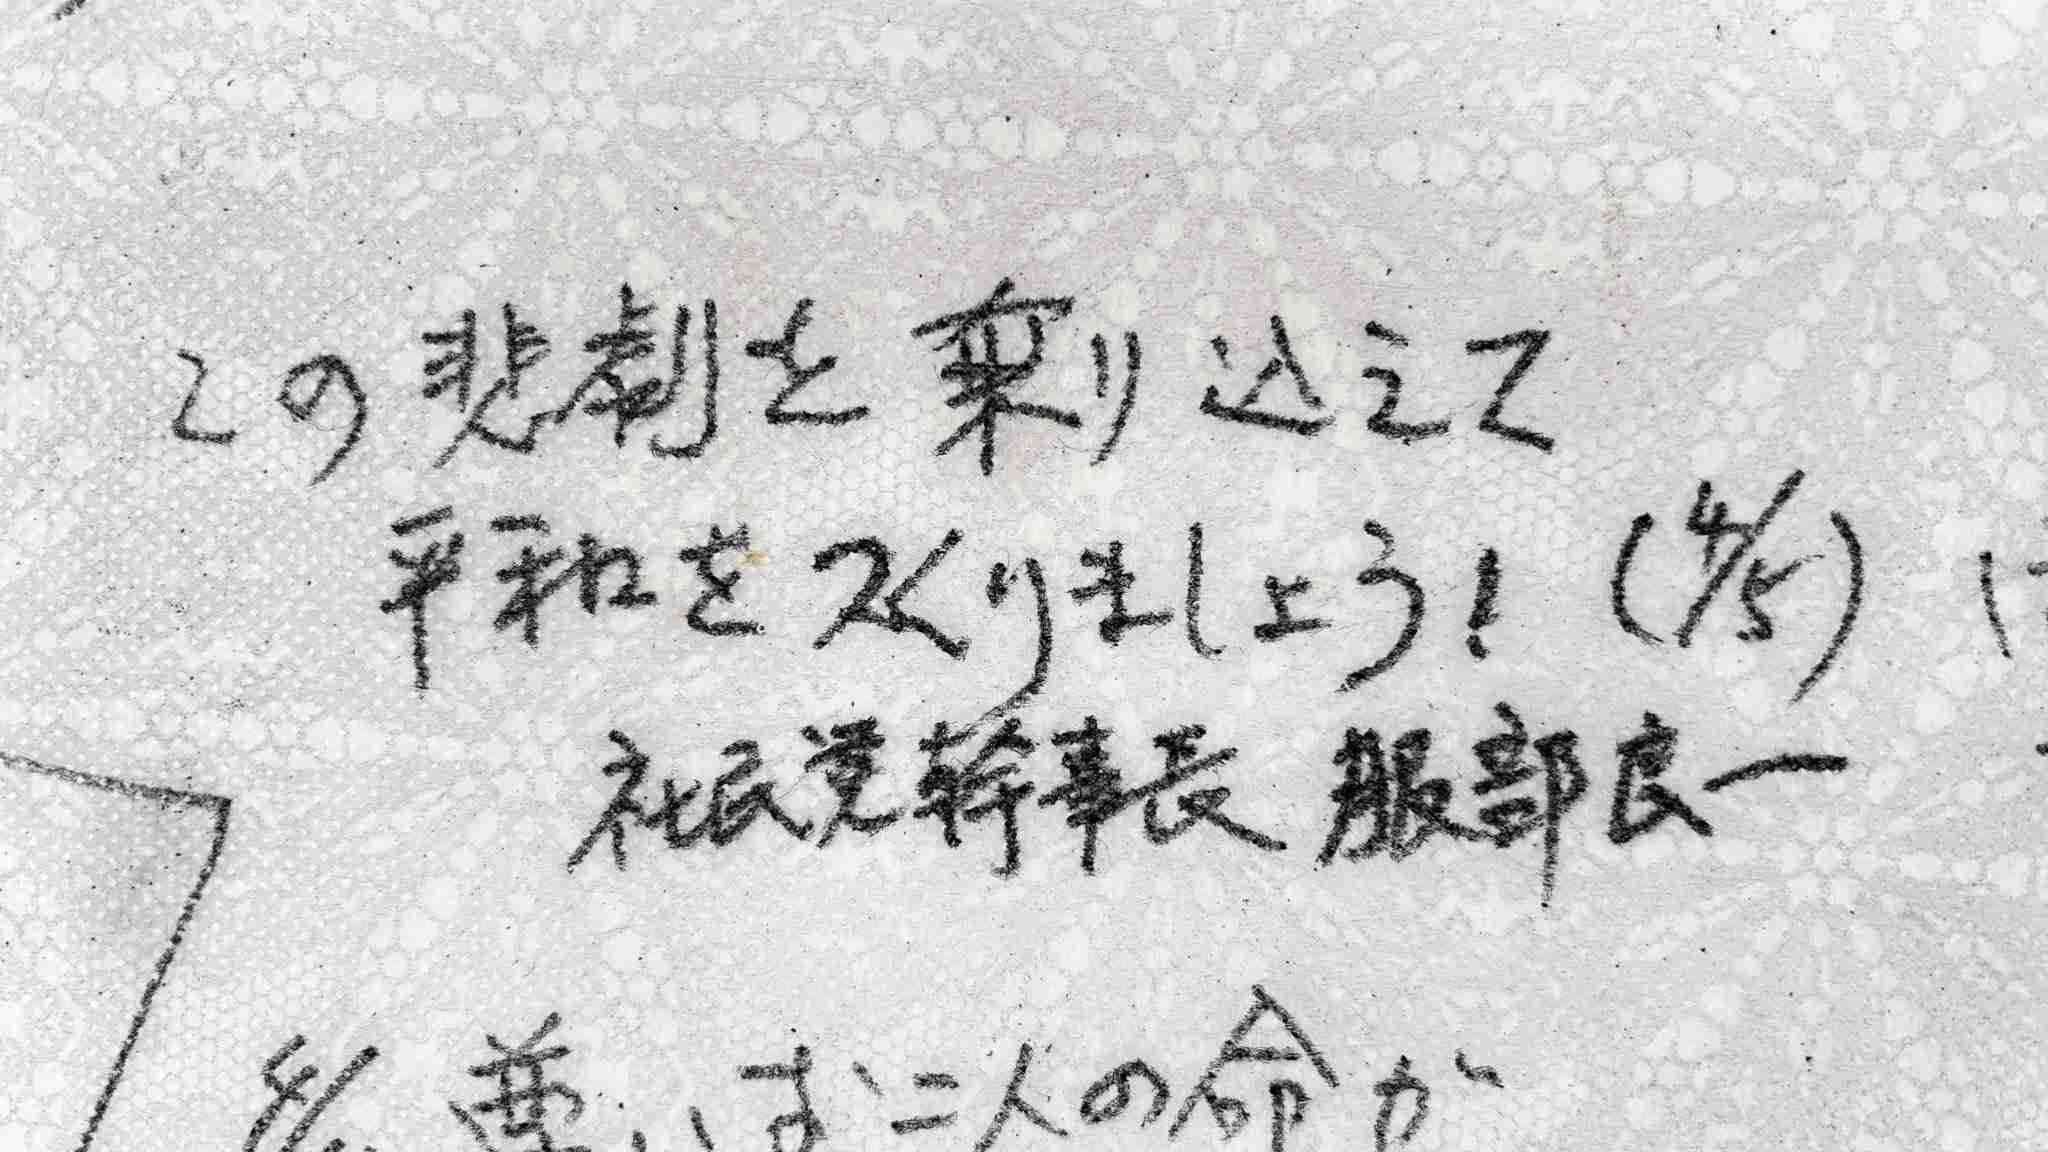 この悲劇を乗り込えて
平和をつくりましょう！ (4/5)
社民党幹事長 服部良一
二人の命が